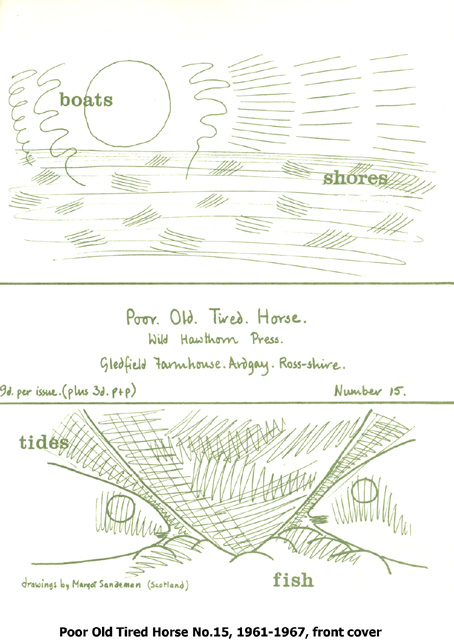 boats
shores
Poor. Old. Tired. Horse.
Wild Hawthorn Press.
Gledfield Farmhouse. Ardgay. Ross-shire.
9d. per issue. (plus 3d. p+p) Number 15.
tides
drawings by Margot Sandeman (Scotland)
fish
Poor Old Tired Horse No.15, 1961-1967, front cover